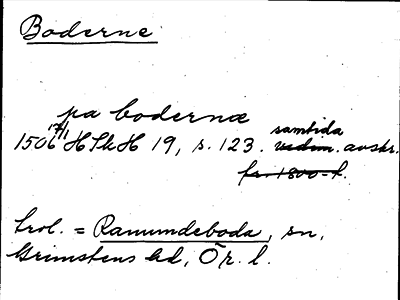 Boderne
pa bodernæ
samtida
1506 17/1 HSkH 19, s. 123. vidim. avskr.
fr. 1800-t.
trol. = Ramundeboda, sn,
Grimstens hd, Ör. l.